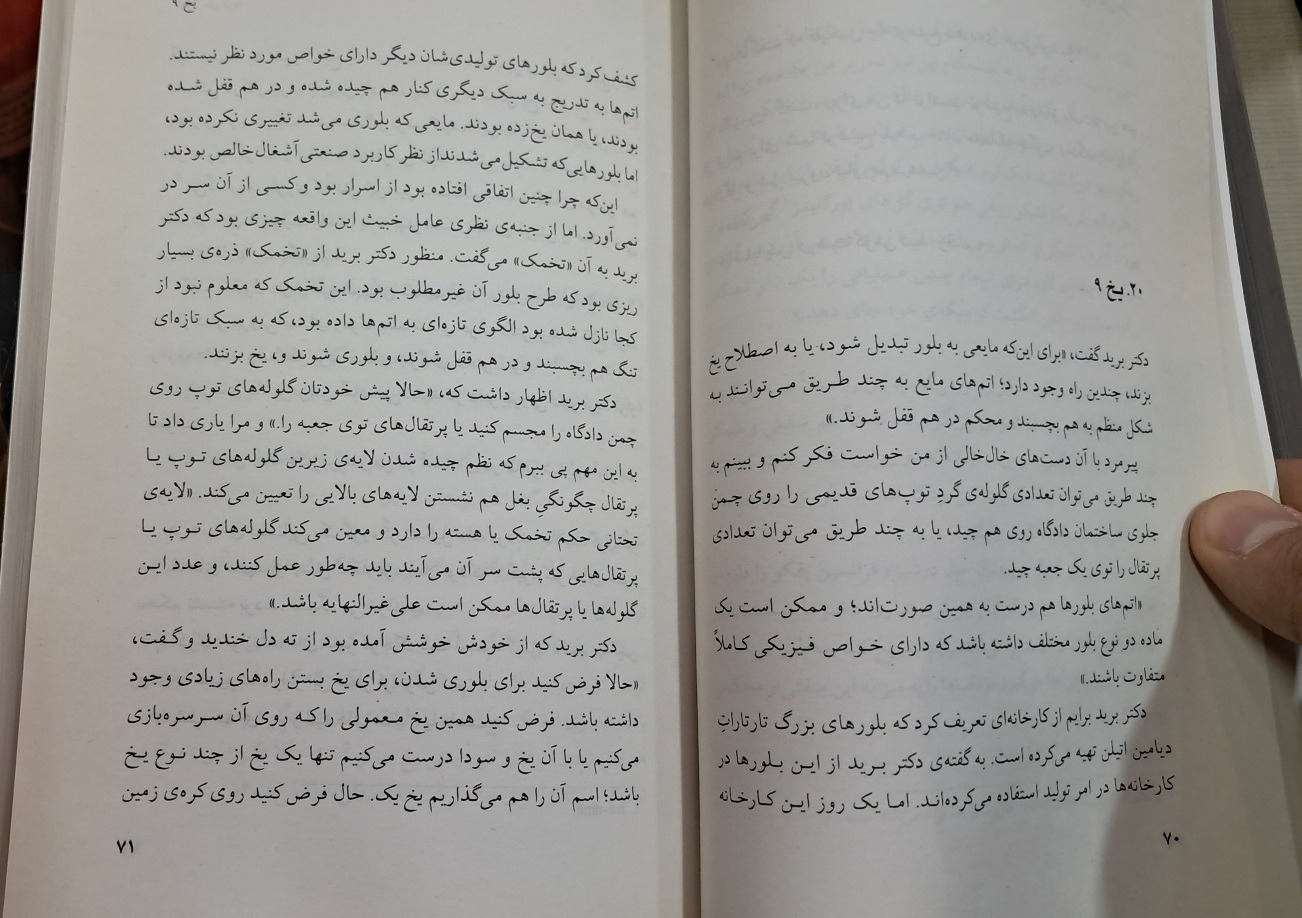 ۲۰. یخ ۹
دکتر برید گفت، «برای این‌که مایعی به بلور تبدیل شود، یا به اصطلاح یخ
بزند، چندین راه وجود دارد؛ اتم‌های مایع به چند طریق می‌توانند به
شکل منظم به هم بچسبند و محکم در هم قفل شوند.»
پیرمرد با آن دست‌های خال‌خالی از من خواست فکر کنم و ببینم به
چند طریق می‌توان تعدادی گلوله‌ی گردِ توپ‌های قدیمی را روی چمن
جلوی ساختمان دادگاه روی هم چید، یا به چند طریق می‌توان تعدادی
پرتقال را توی یک جعبه چید.
«اتم‌های بلورها هم درست به همین صورت‌اند؛ و ممکن است یک
ماده دو نوع بلور مختلف داشته باشد که دارای خواص فیزیکی کاملاً
متفاوت باشند.»
دکتر برید برایم از کارخانه‌ای تعریف کرد که بلورهای بزرگ تارتاراتِ
دیامین اتیلن تهیه می‌کرده است. به گفته‌ی دکتر برید از این بلورها در
کارخانه‌ها در امر تولید استفاده می‌کرده‌اند. اما یک روز این کارخانه
۷۰
یخ ۹
کشف کرد که بلورهای تولیدی‌شان دیگر دارای خواص مورد نظر نیستند.
اتم‌ها به تدریج به سبک دیگری کنار هم چیده شده و در هم قفل شده
بودند، یا همان یخ‌زده بودند. مایعی که بلوری می‌شد تغییری نکرده بود،
اما بلورهایی که تشکیل می‌شدند از نظر کاربرد صنعتی آشغال خالص بودند.
این‌که چرا چنین اتفاقی افتاده بود از اسرار بود و کسی از آن سر در
نمی‌آورد. اما از جنبه‌ی نظری عامل خبیث این واقعه چیزی بود که دکتر
برید به آن «تخمک» می‌گفت. منظور دکتر برید از «تخمک» ذره‌ی بسیار
ریزی بود که طرح بلور آن غیرمطلوب بود. این تخمک که معلوم نبود از
کجا نازل شده بود الگوی تازه‌ای به اتم‌ها داده بود، که به سبک تازه‌ای
تنگ هم بچسبند و در هم قفل شوند، و بلوری شوند و، یخ بزنند.
دکتر برید اظهار داشت که، «حالا پیش خودتان گلوله‌های توپ روی
چمن دادگاه را مجسم کنید یا پرتقال‌های توی جعبه را.» و مرا یاری داد تا
به این مهم پی ببرم که نظم چیده شدن لایه‌ی زیرین گلوله‌های توپ یا
پرتقال چگونگیِ بغل هم نشستن لایه‌های بالایی را تعیین می‌کند. «لایه‌ی
تحتانی حکم تخمک یا هسته را دارد و معین می‌کند گلوله‌های توپ یا
پرتقال‌هایی که پشت سر آن می‌آیند باید چه‌طور عمل کنند، و عدد این
گلوله‌ها یا پرتقال‌ها ممکن است علی‌غیرالنهایه باشد.»
دکتر برید که از خودش خوشش آمده بود از ته دل خندید و گفت،
«حالا فرض کنید برای بلوری شدن، برای یخ بستن راه‌های زیادی وجود
داشته باشد. فرض کنید همین یخ معمولی را که روی آن سرسره‌بازی
می‌کنیم یا با آن یخ و سودا درست می‌کنیم تنها یک یخ از چند نوع یخ
باشد؛ اسم آن را هم می‌گذاریم یخ یک. حال فرض کنید روی کره‌ی زمین
۷۱